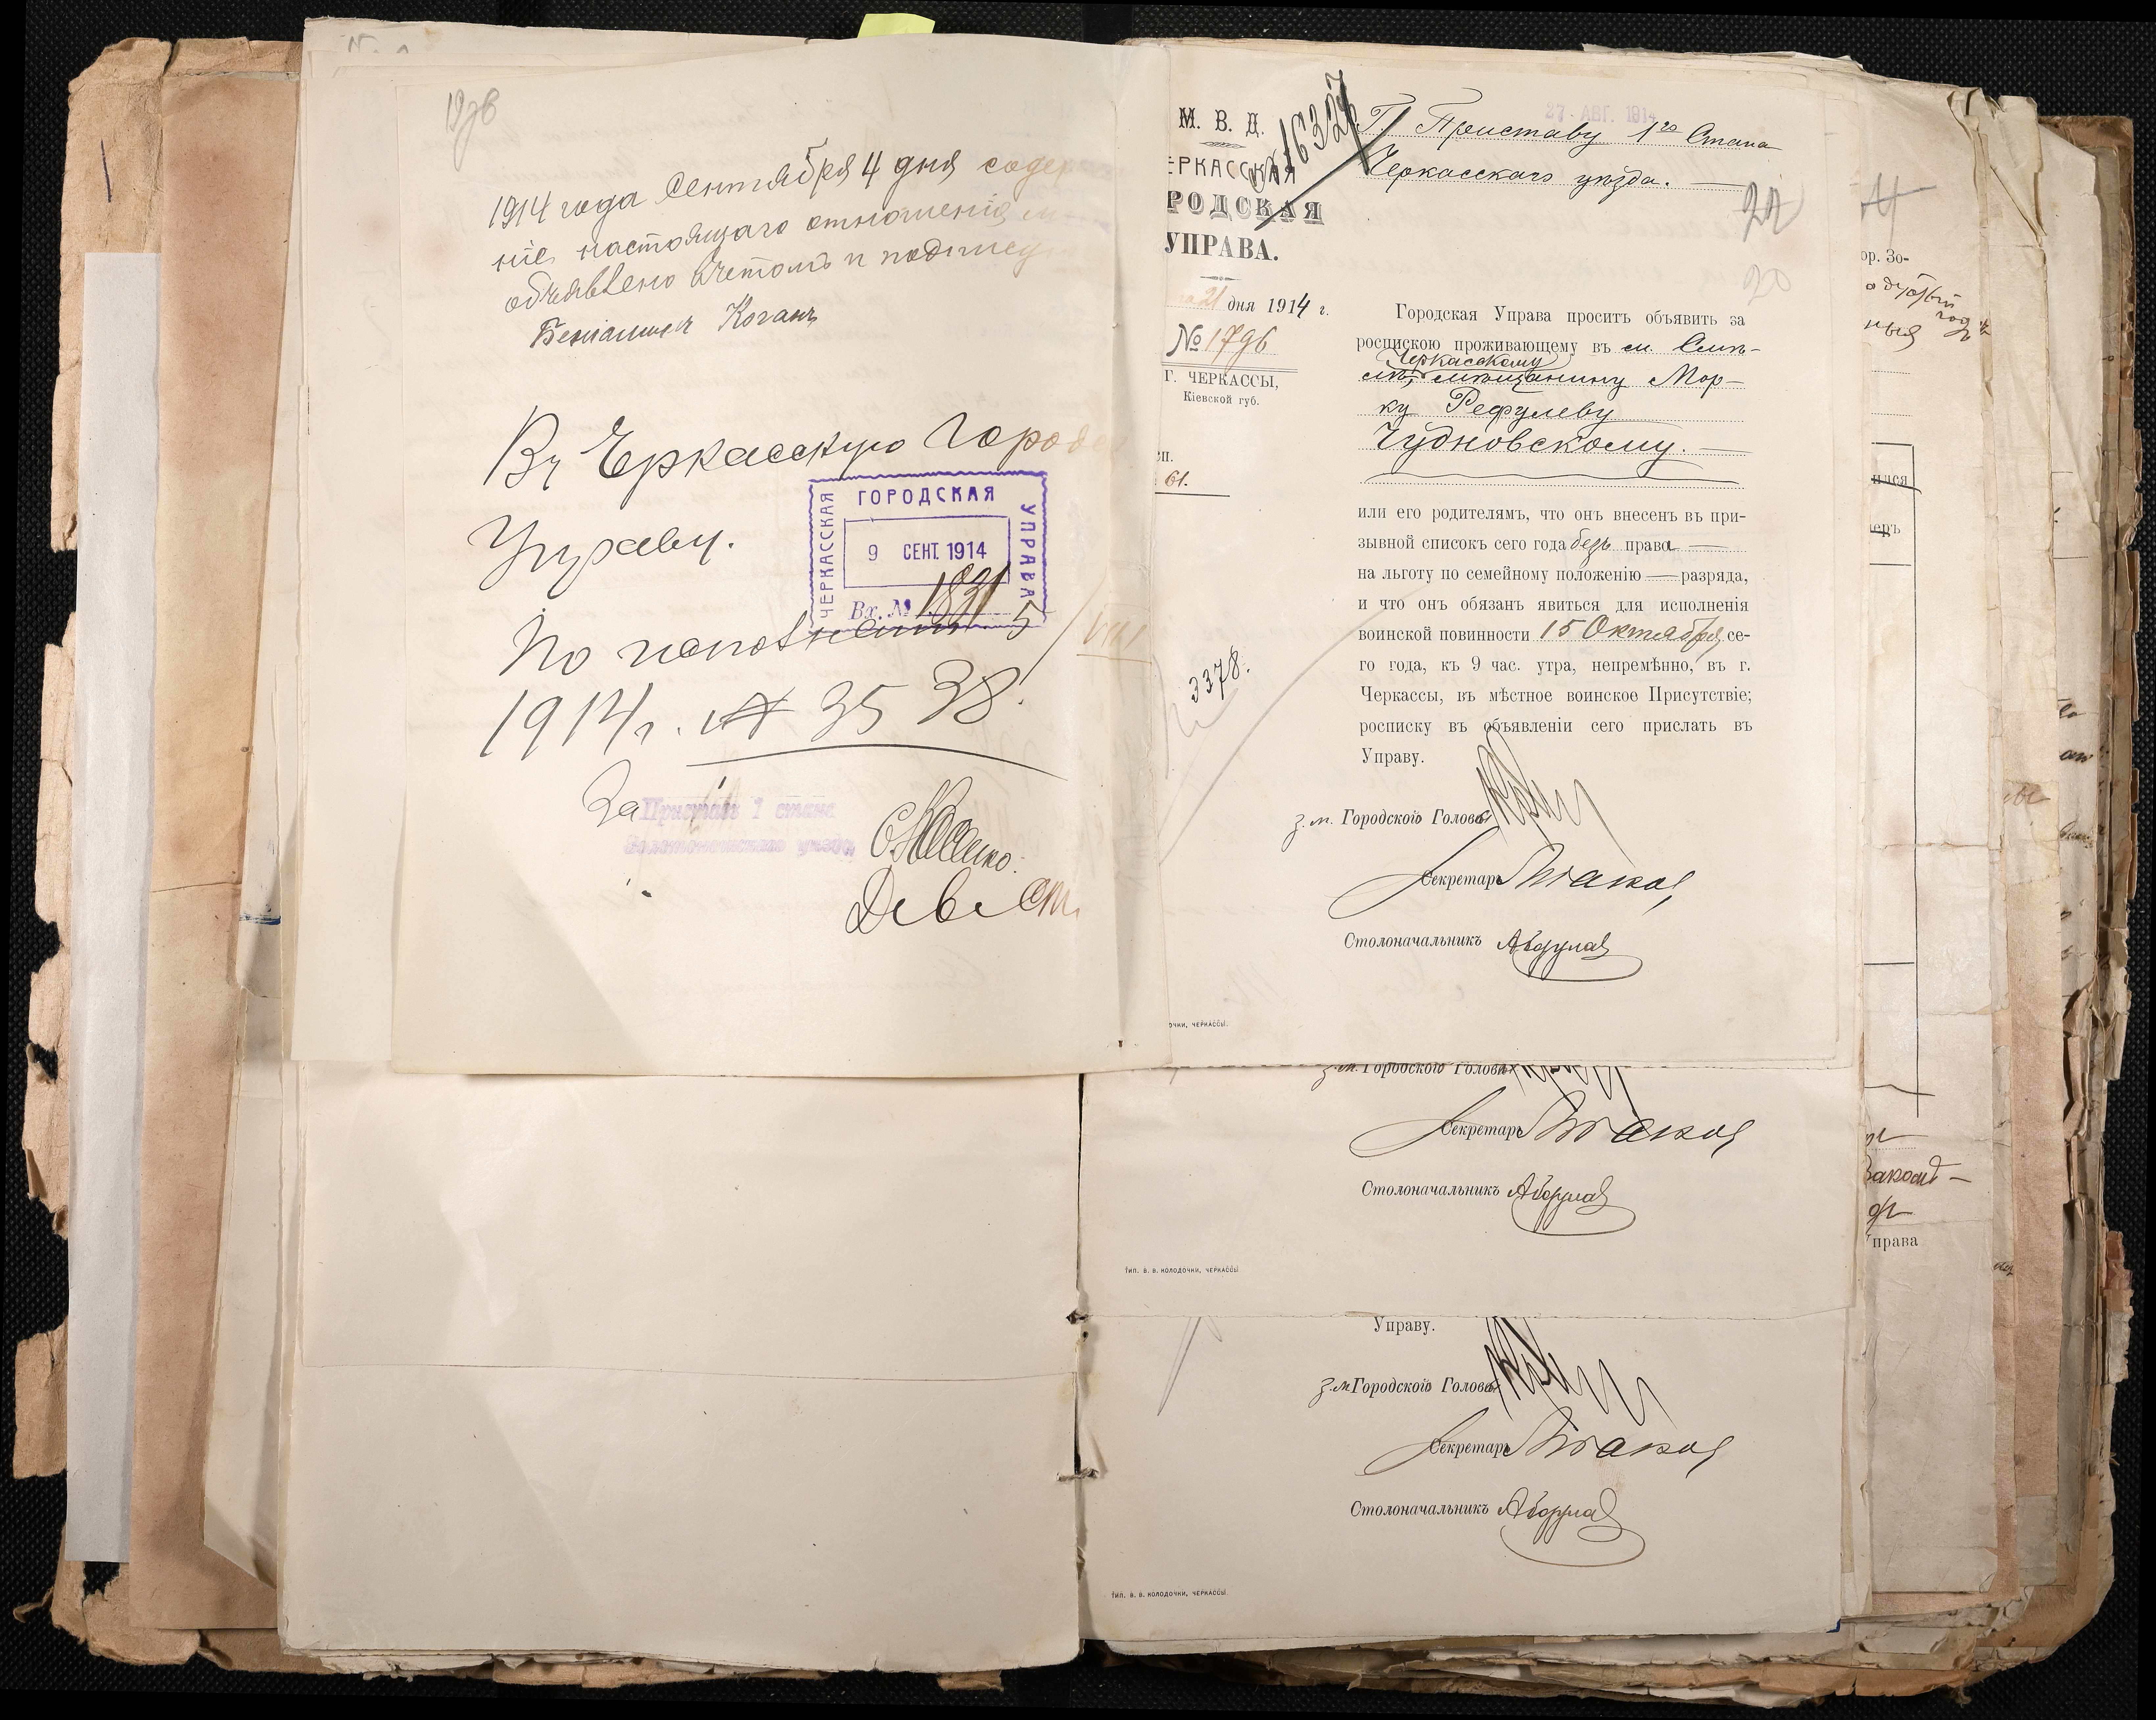 1914 года Сентября 4 дня содер
ніе настоящаго отношенія
объявлено
Веніаминъ Коганъ
Въ Черкасскую Городс
Управу.
ЧЕРКАССКАЯ
ГОРОДСКАЯ
УПРАВА
9 СЕНТ. 1914
Вх. №
По исполненіи 5
1914 г. № 3538
За
Приставъ 1 стана
М. В. Д.
ЕРКАССКАЯ
РОДСКАЯ
УПРАВА.
21 дня 1914 г.
№ 1796
Г. ЧЕРКАССЫ,
Кіевской губ.
61.
3378.
16327
27 АВГ. 1914
Г. Приставу 1го Стана
Черкасскаго уѣзда.
22
20
Городская Управа проситъ объявить за
роспискою проживающему въ м. Смѣ-
Черкасскому
лѣ, мѣщанину Мор-
ку Рефулеву
Чудновскому.
или его родителямъ, что онъ внесенъ въ при-
зывной списокъ сего года безъ права
на льготу по семейному положенію — разряда,
и что онъ обязанъ явиться для исполненія
воинской повинности 15 Октября се-
го года, къ 9 час. утра, непремѣнно, въ г.
Черкассы, въ мѣстное воинское Присутствіе;
росписку въ объявленіи сего прислать въ
Управу.
з. м. Городского Головы
Секретарь
Столоначальникъ
ОЧКИ, ЧЕРКАССЫ.
з. м. Городского Головы
Секретарь
Столоначальникъ
ТИП. В. В. КОЛОДОЧКИ, ЧЕРКАССЫ.
Управу.
з. м. Городского Головы
Секретарь
Столоначальникъ
ТИП. В. В. КОЛОДОЧКИ, ЧЕРКАССЫ.
ор. Зо-
права